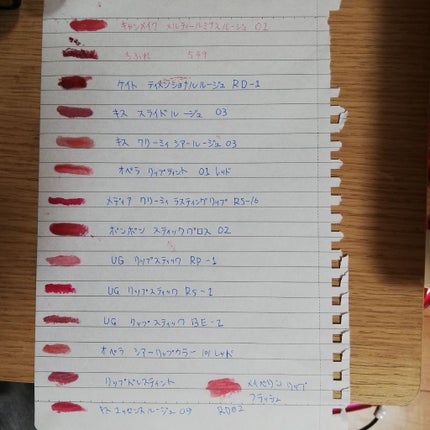 キャンメイク メルティールミナスルージュ 02
ちふれ 549
ケイト ディメンショナルルージュ RD-1
キス スライドルージュ 03
キス クリーミィシアールージュ 03
オペラ リップティント 01 レッド
メディア クリーミィラスティングリップ RS-16
ボンボン スティックグロス 02
UG リップスティック RP-1
UG リップスティック RS-1
UG リップスティック BE-2
オペラ シアーリップカラー 101 レッド
リップドレスティント
メイベリン リップ
フラッシュ
RD02
キス エッセンスルージュ 09